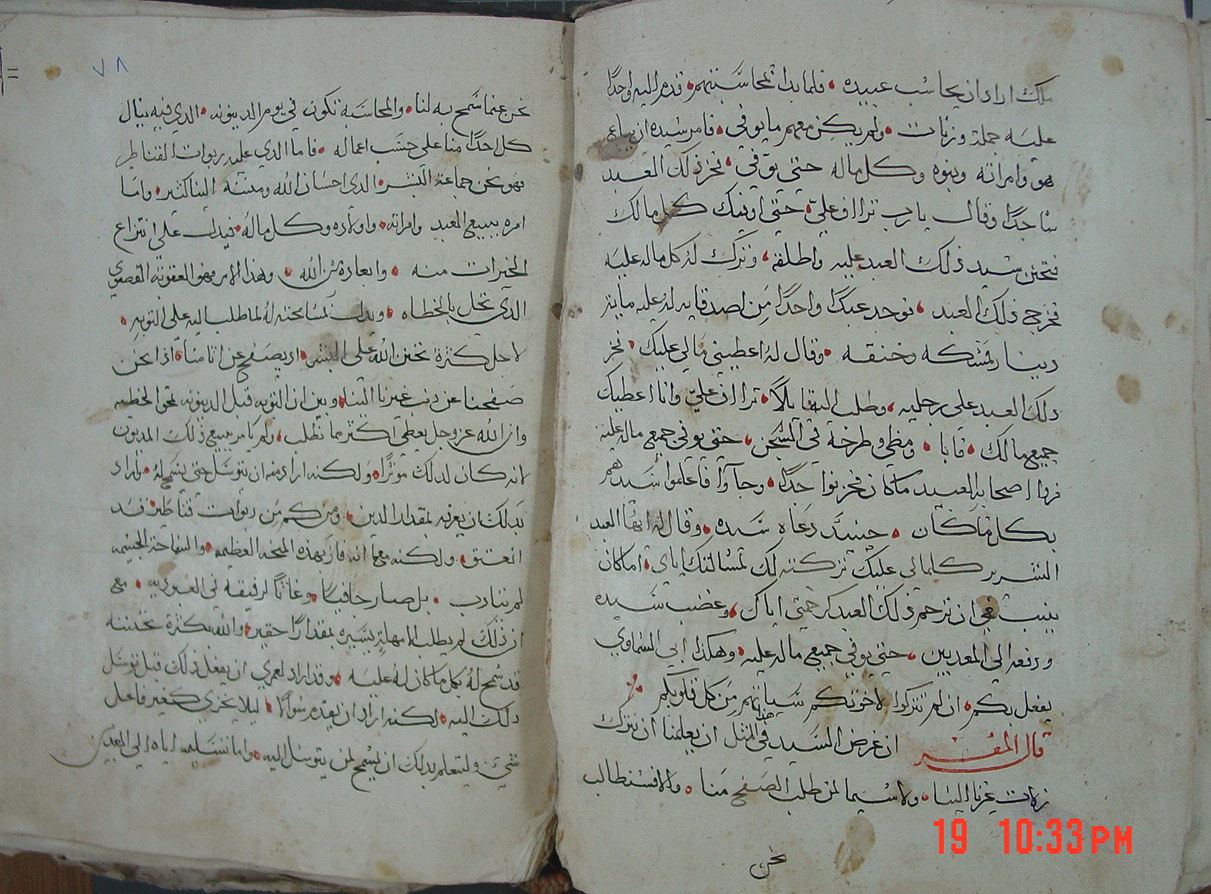 ملك اراد ان يحاسب عبيده • فلما بدا بمحاسبتهم • قدم اليه واحدًا
عليه جملة وزنات • ولم يكن معهم ما يوفي • فامر سيده ان يباع
هو وامراته وبنوه وكل ماله حتى يوفي • فخر ذلك العبد
ساجدًا وقال يا رب تراان علي • حتى اوفيك كل مالك
فتحنن سيد ذلك العبد عليه واطلقه • وترك له كل ماله عليه
فخرج ذلك العبد • فوجد عبدًا واحدًا من اصدقايه له عليه ماية
دينار فمسكه وخنقه • وقال له اعطيني مالي عليك • فخر
ذلك العبد على رجليه • وطلب اليه قايلًا • تراا ان علي وانا اعطيك
جميع مالك • فابا • ومظي وطرحه في السجن • حتى يوفي جميع ماله عليه
فراا اصحابه العبيد ماكان فحزنوا جدًا • وجاوا فاعلموا سيدهم
بكل ماكان • حينيد دعاه سيده • وقال له ايها العبد
الشرير كلمالي عليك تركته لك لمسالتك اياي • اماكان
ينبغي ان ترحم ذلك العبد كرحمتي اياك • وغضب سيده
ودفعه الي المعدبين • حتى يوفي جميع ماله عليه • وهكذا ابي السماوي
يفعل بكم • ان لم تتركوا لاخوتكم سياتهم من كل قلوبكم
قال المفسر ان غرض السيد في هذا المثل ان يعلمنا ان نترك
زلات غيرنا الينا • ولاسيما لمن طلب الصفح منا • والا فسنطالب
نحن
٧٨
نحن عنما سمح به لنا • والمحاسبة تكون في يوم الدينونه • الذي فيه ينال
كل احدًا منا علي حسب اعماله • فاما الذي عليه ربوات القناطير
فهو نحن جماعة البشر • الذي احسان الله ومنته الينا كثير • واما
امره ببيع العبد وامراته • واولاده وكل ماله • فيدل علي انتزاع
الخيرات منه • وابعاده من الله • وهذا الامر فهو العقوبه القصوي
الذي تحل بالخطاه • ويدل ايضا بمحنته له لما طلب اليه علي التوبه •
لاجل كثرة تحنن الله علي البشر • اد يصفح عن اثامنا • اذا نحن
صفحنا عن ذنب غيرنا الينا • وبين ان التوبه قبل الدينونه تمحو الخطيه
وان الله عز وجل يعطي اكثر مما نطلب • ولم يامر ببيع ذلك المديون
لانه كان لذلك موثرًا • ولكنه اراد منه ان يتوسل حتى يسمح له • واراد
بدلك ان يعرفه بمقدار الدين • ومن كم من ربوات قناطير قد
انعتق • ولكنه مع انه فاز بهذه المنحه العظيمه • والسماحة الجسيمه
لم يتادب • بل صار جافيًا • وغاشًا لرفيقه في العبوديه • مع
ان ذلك لم يطلب الا مهله يسيره بمقدارًا حقير • والله بكثرة تحننه
قد سمح له كل ماكان له عليه • وقد اراد لعمري ان يفعل ذلك قبل توسل
ذلك اليه • لكنه اراد ان يقدم سوالًا • ليلا يجري كغير فاعل
شي • وليتعلم بدلك ان يسمح لمن يتوسل اليه • واما تسليمه اياه الي المعدبين
19 10:33 PM